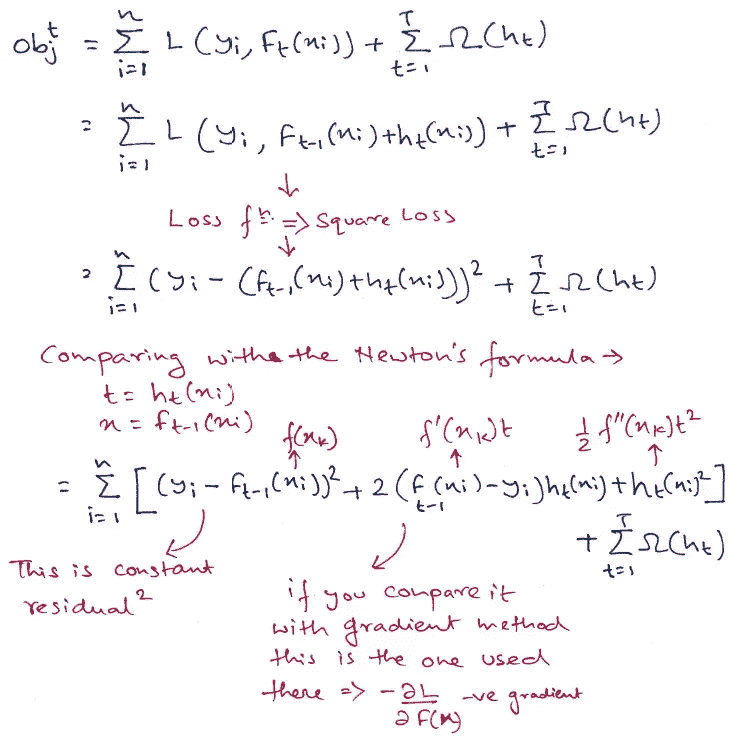 obj^t = Σ_{i=1}^{n} L (y_i, F_t(x_i)) + Σ_{t=1}^{T} Ω(h_t)
= Σ_{i=1}^{n} L (y_i, F_{t-1}(x_i)+h_t(x_i)) + Σ_{t=1}^{T} Ω(h_t)
↓
Loss fn. => Square Loss
↓
= Σ_{i=1}^{n} (y_i - (f_{t-1}(x_i)+h_t(x_i)))² + Σ_{t=1}^{T} Ω(h_t)
Comparing with the the Newton's formula →
t = h_t(x_i)
x = f_{t-1}(x_i)
f(x_k) f'(x_k)t ½ f''(x_k)t²
↑ ↑ ↑
= Σ_{i=1}^{n} [(y_i - F_{t-1}(x_i))² + 2(f_{t-1}(x_i)-y_i)h_t(x_i)+h_t(x_i)²]
+ Σ_{t=1}^{T} Ω(h_t)
This is constant
residual²
if you compare it
with gradient method
this is the one used
there => -∂L/∂F(x) -ve gradient